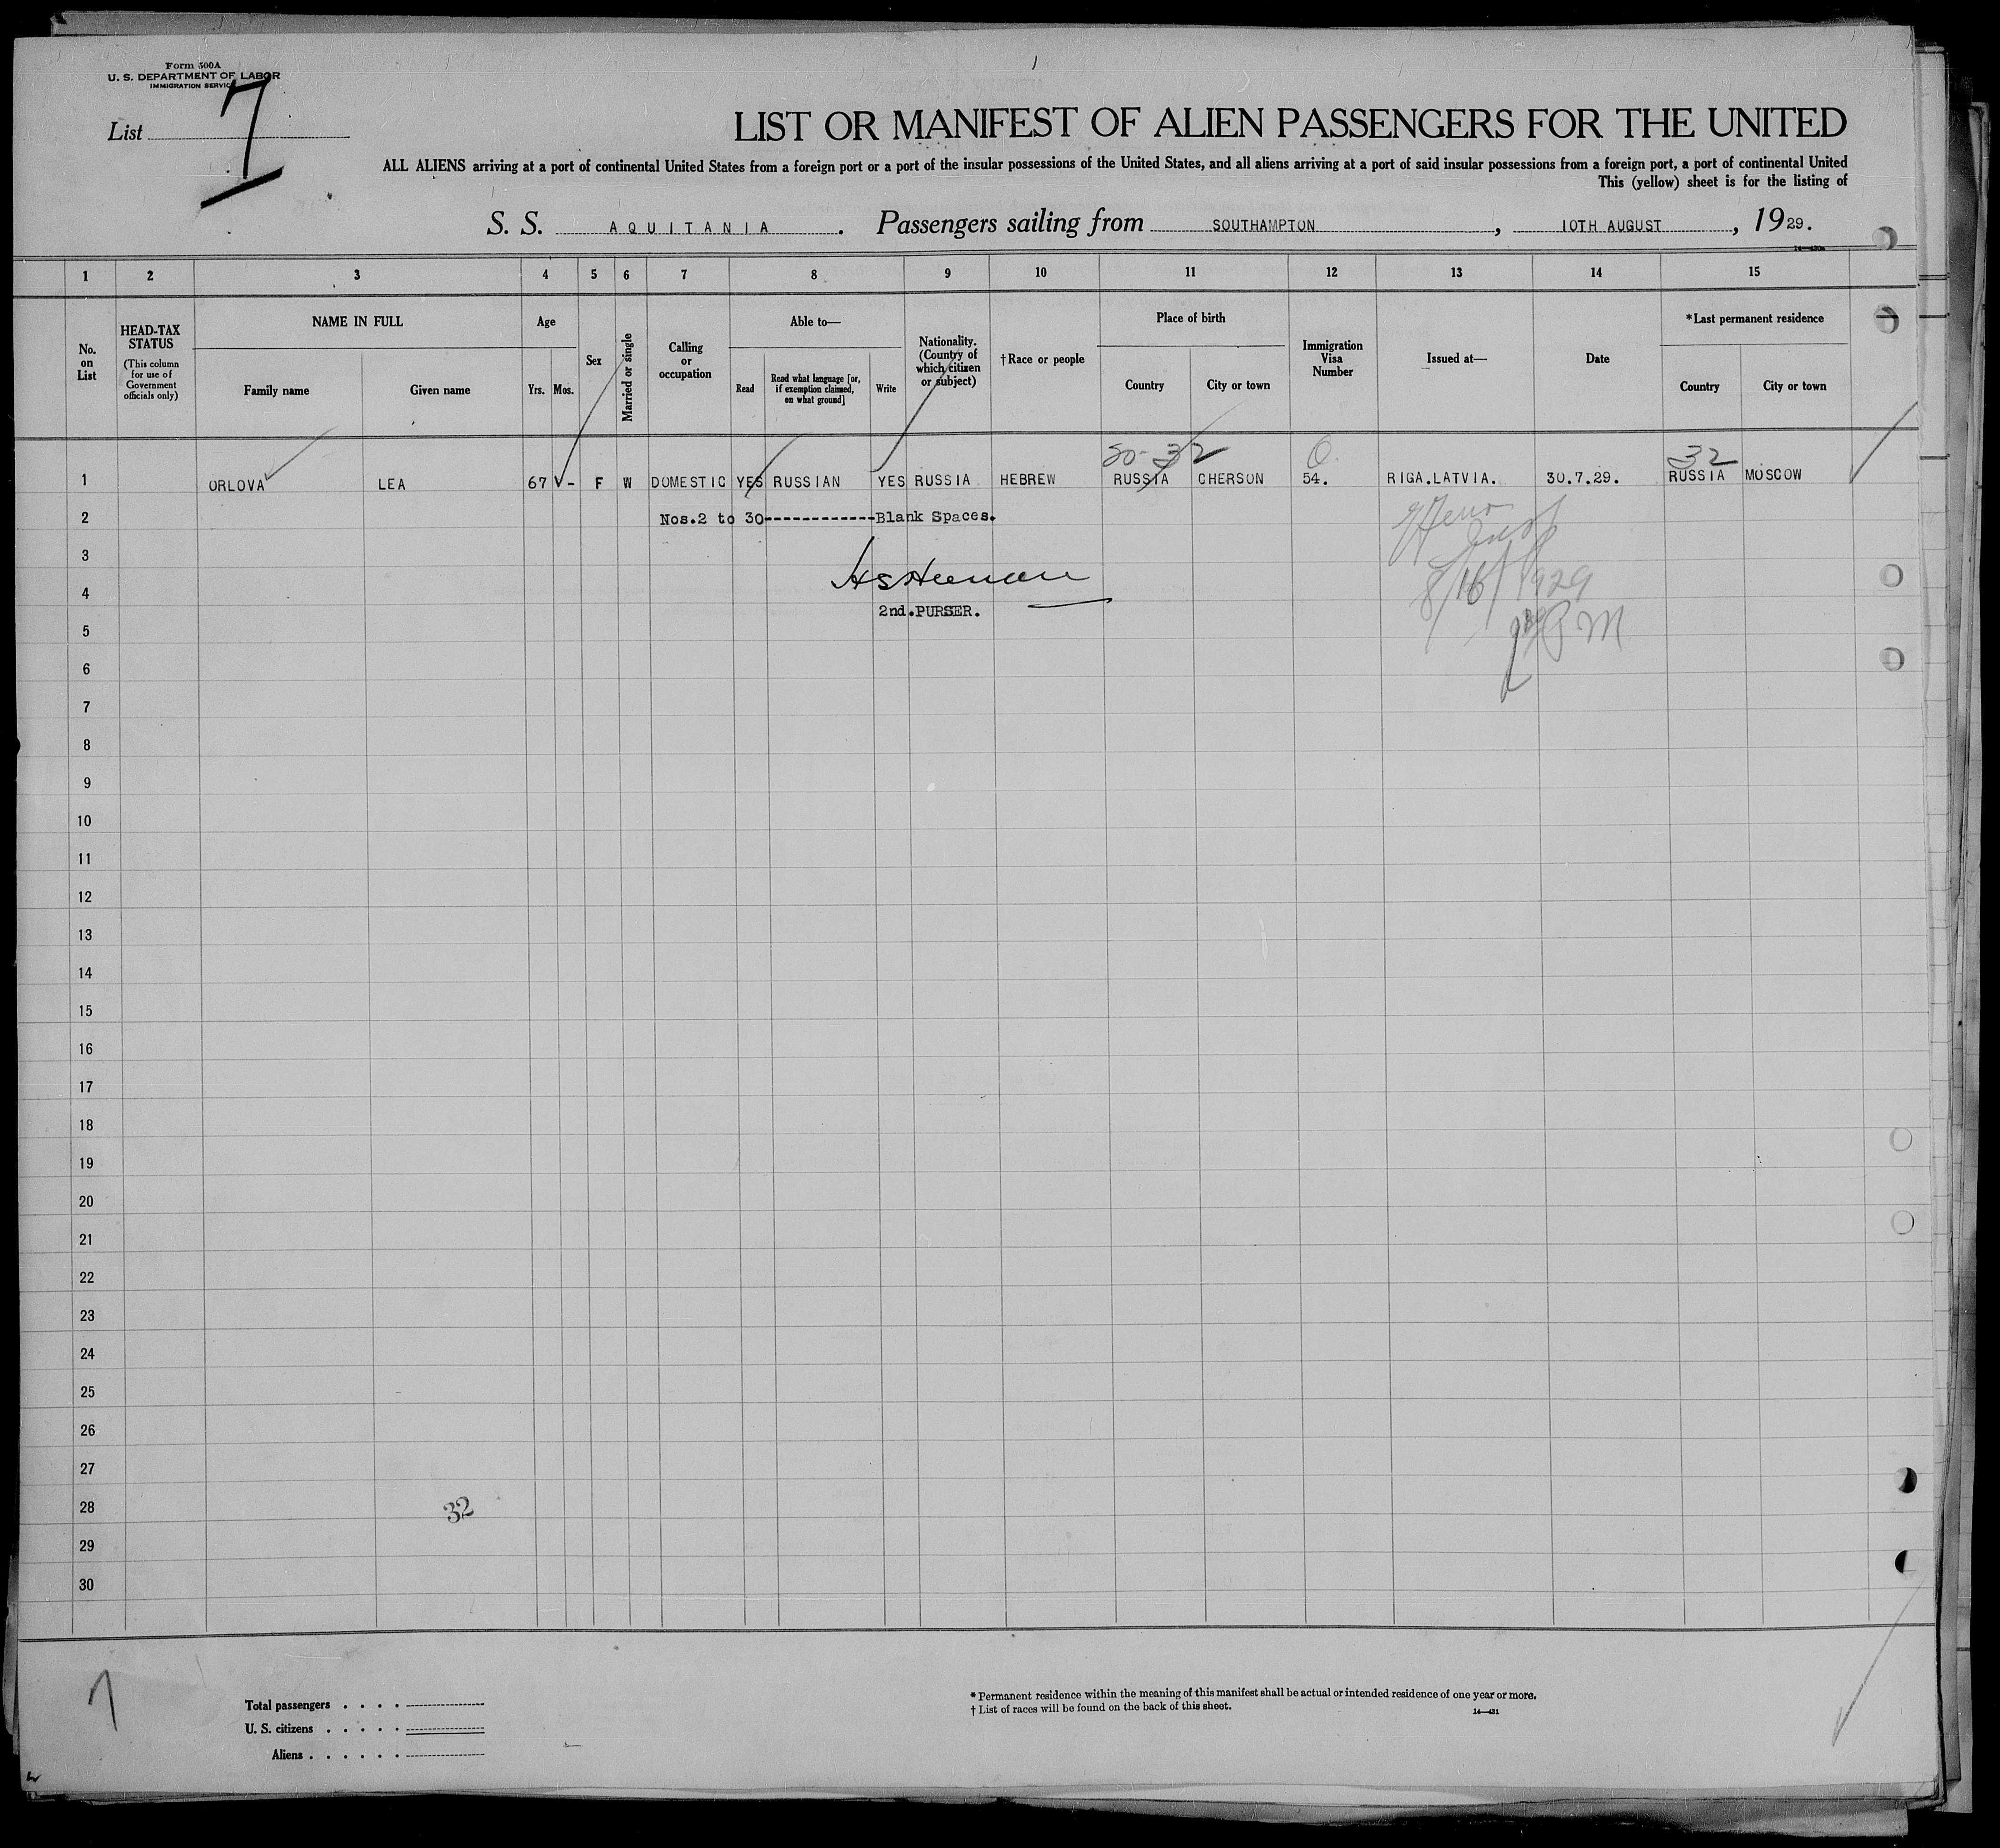 Form 500A
U. S. DEPARTMENT OF LABOR
IMMIGRATION SERVICE
List 7
LIST OR MANIFEST OF ALIEN PASSENGERS FOR THE UNITED
ALL ALIENS arriving at a port of continental United States from a foreign port or a port of the insular possessions of the United States, and all aliens arriving at a port of said insular possessions from a foreign port, a port of continental United
This (yellow) sheet is for the listing of
S. S. AQUITANIA. Passengers sailing from SOUTHAMPTON, 10TH AUGUST, 1929.
1 2 3 4 5 6 7 8 9 10 11 12 13 14 15
No. on List
HEAD-TAX STATUS
(This column for use of Government officials only)
NAME IN FULL
Family name Given name
Age
Yrs. Mos.
Sex
Married or single
Calling or occupation
Able to—
Read
Read what language [or, if exemption claimed, on what ground]
Write
Nationality. (Country of which citizen or subject)
†Race or people
Place of birth
Country City or town
Immigration Visa Number
Issued at—
Date
*Last permanent residence
Country City or town
32
1 ORLOVA LEA 67 - F W DOMESTIC YES RUSSIAN YES RUSSIA HEBREW RUSSIA CHERSON 54. RIGA.LATVIA. 30.7.29. RUSSIA MOSCOW
2 Nos.2 to 30------------Blank Spaces.
3
4
8/16/1929
2nd.PURSER.
5
PM
6
7
8
9
10
11
12
13
14
15
16
17
18
19
20
21
22
23
24
25
26
27
28
32
29
30
7
Total passengers . . . .
U. S. citizens . . . . .
Aliens . . . . . .
* Permanent residence within the meaning of this manifest shall be actual or intended residence of one year or more.
† List of races will be found on the back of this sheet.
14—431